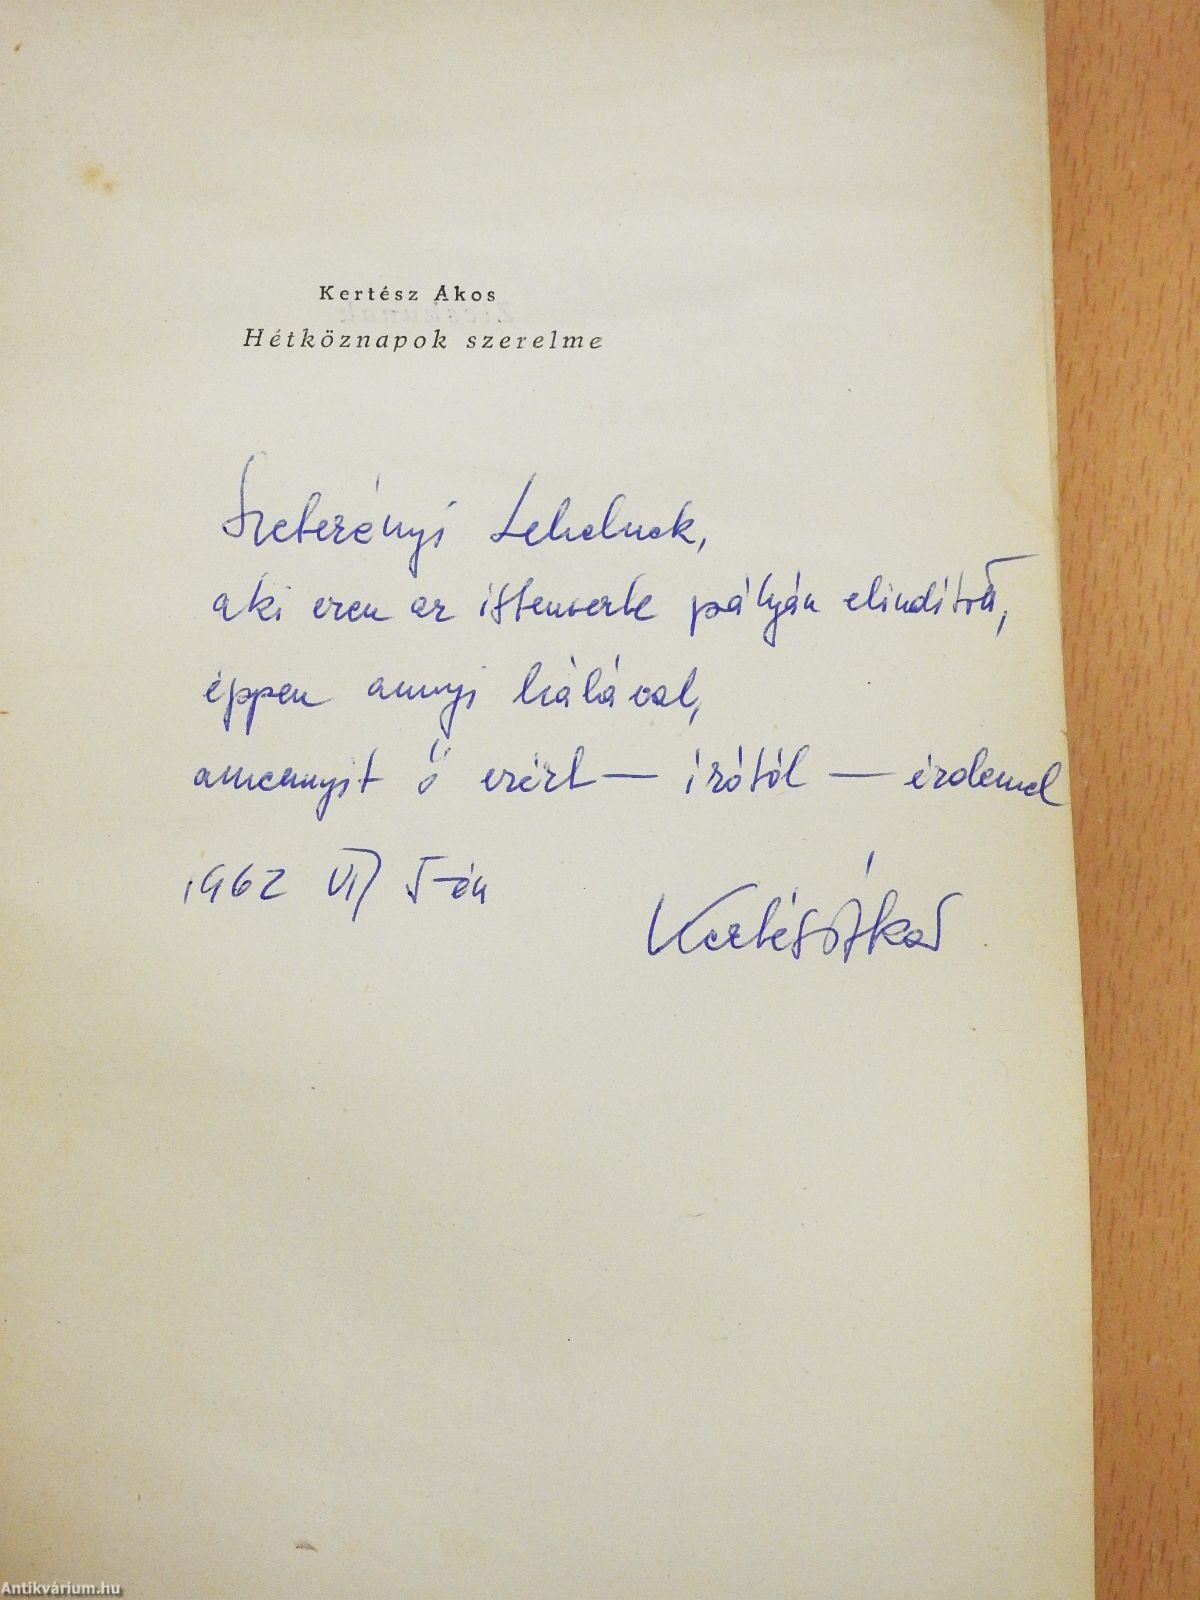 Kertész Akos
Hétköznapok szerelme
Szeberényi Lehelnek,
aki ezen az istenverte pályán elindított,
éppen annyi hálával,
amennyit ő ezért — írótól — érdemel
1962 VI) 5-én
Kertész Ákos
Antikvárium.hu